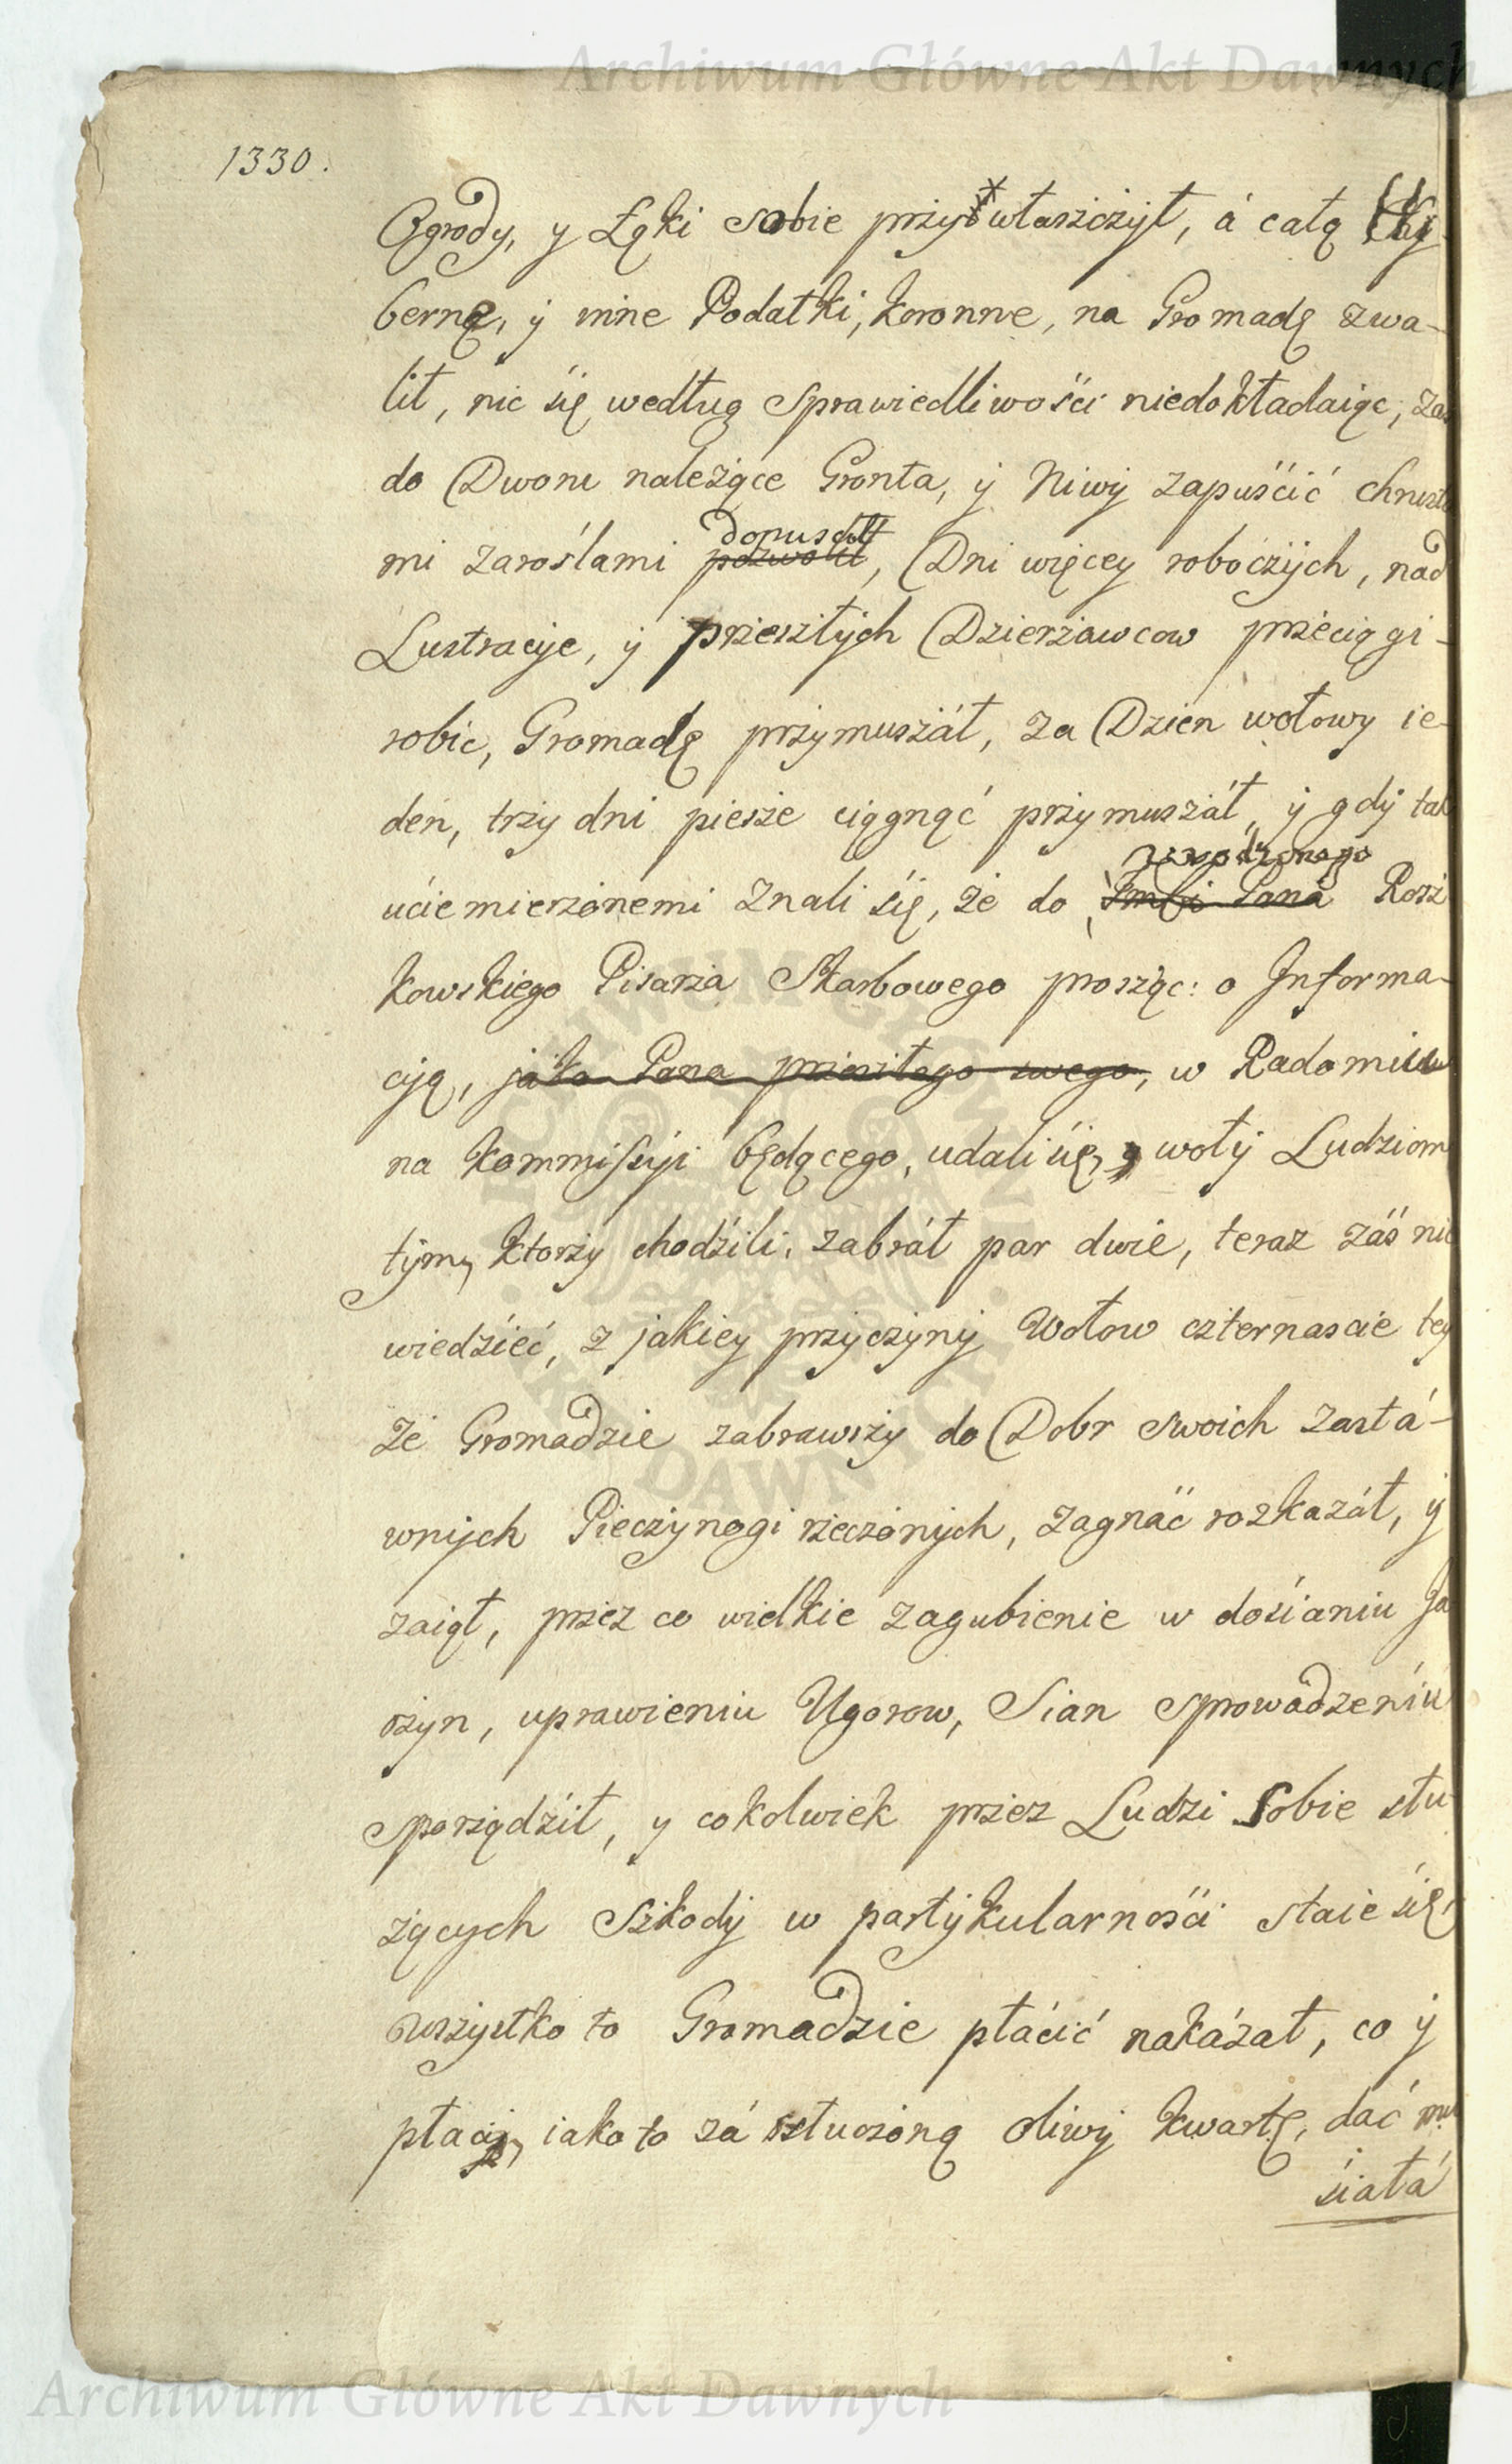 Archiwum Główne Akt Dawnych
1330.
Ogrody, y Łąki sobie przywłaszczył, á całą Hy-
bernę, ÿ inne Podatki, koronne, na Gromadę zwa-
lił, nic się według Sprawiedliwości niedokładaiąc, zaś
do Dworu należące Gronta, ÿ Niwÿ zapuścić chrusta
mi zaroślami pozwolił dopuscił, Dni więcey roboczÿch, nad
Lustracÿe, ÿ przeszłÿch Dzierżawcow przeciągi-
robic, Gromadę przymuszáł, za Dzien wołowy ie-
den, trzy dni piesze ciągnąć przymuszáł, ÿ gdÿ tak
uciemierzonemi znali się, że do Imći Pana urodzonego Rosz
kowskiego Pisarza Skarbowego prosząc: o Informa-
cÿą, jako Pana przeszłego swego, w Radomiu
na kommissÿi będącego, udali się, y wołÿ Ludziom
tÿm, ktorzy chodźili, zabráł par dwie, teraz zás nie
wiedzieć, z jakiey przÿczÿnÿ Wołow czternascie tey
że Gromadzie zabrawszy do Dobr swoich zastá-
wnÿch Pieczynogi rzeczonÿch, zagnáć rozkazáł, ÿ
zaiął, przez co wielkie zagubienie w dosianiu Ja
rzyn, uprawieniu Ugorow, Sian sprowádzeniu
sporządźił, y cokolwiek przez Ludzi Sobie słu
żących Szkodÿ w partÿkularnosci staie się,
wszystko to Gromadzie płáćić nakázał, co ÿ
płaci, iako to zá stłuczoną oliwÿ kwartę, dać mu
siałá
ARCHIWUM GŁÓWNE AKT DAWNYCH
Archiwum Główne Akt Dawnych